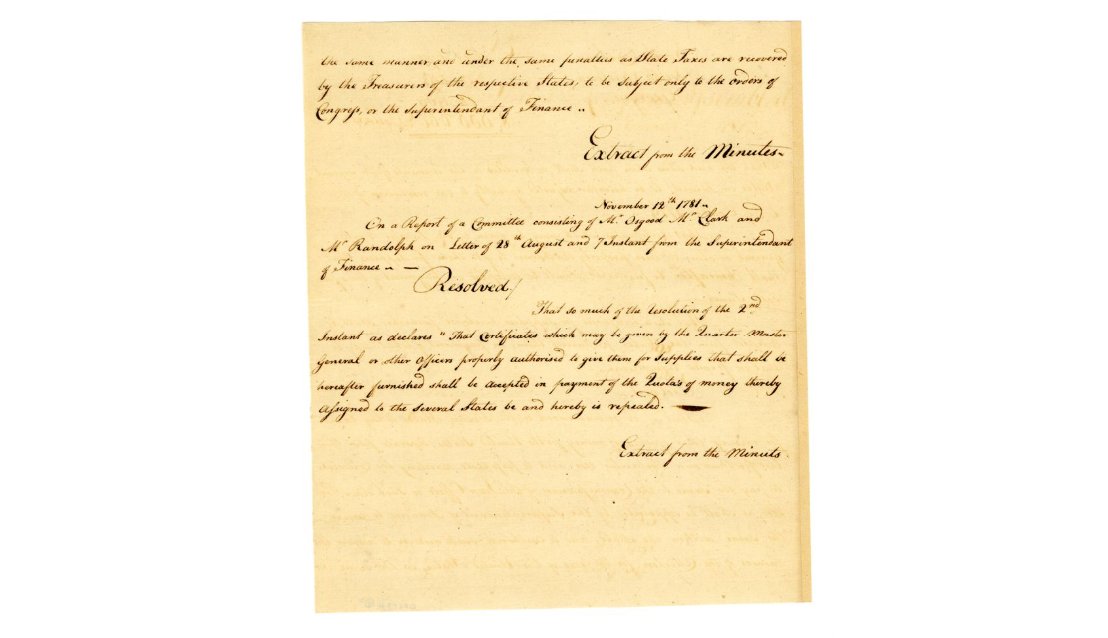 the same manner and under the same penalties as State Taxes are recovered
by the Treasurers of the respective States, to be subject only to the orders of
Congress, or the Superintendant of Finance ..
Extract from the Minutes
November 12th 1781
On a Report of a Committee consisting of Mr Osgood Mr Clark and
Mr Randolph on Letter of 28th August and 7 Instant from the Superintendant
of Finance
Resolved/
That so much of the resolution of the 2nd
Instant as declares "That Certificates which may be given by the Quarter Master
General or other Officers properly authorised to give them for Supplies that shall be
hereafter furnished shall be accepted in payment of the Quota's of money thereby
assigned to the several States be and hereby is repealed.
Extract from the Minuts